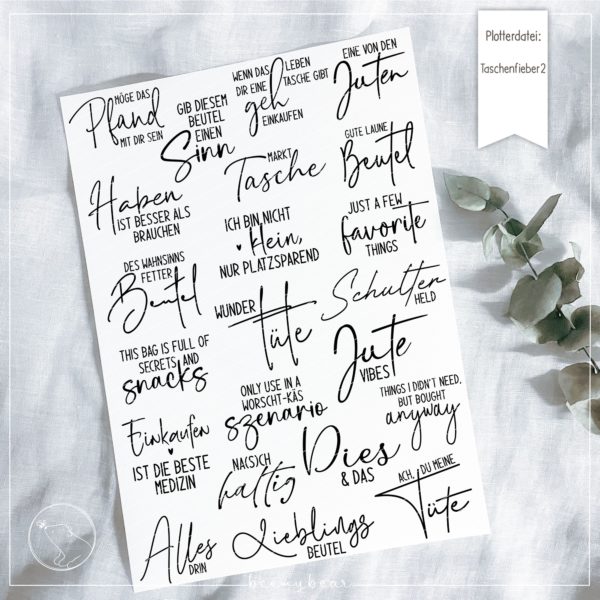 Plotterdatei:
Taschenfieber2
MÖGE DAS
Pfand
MIT DIR SEIN
GIB DIESEM
BEUTEL
EINEN
Sinn
WENN DAS LEBEN
DIR EINE TASCHE GIBT
geh
EINKAUFEN
EINE VON DEN
Juten
Haben
IST BESSER ALS
BRAUCHEN
MARKT
Tasche
GUTE LAUNE
Beutel
ICH BIN NICHT
klein,
NUR PLATZSPAREND
JUST A FEW
favorite
THINGS
DES WAHNSINNS
FETTER
Beutel
WUNDER
tüte
Schulter
HELD
THIS BAG IS FULL OF
SECRETS AND
snacks
Jute
VIBES
ONLY USE IN A
WORSCHT-KÄS
szenario
THINGS I DIDN'T NEED,
BUT BOUGHT
anyway
Einkaufen
IST DIE BESTE
MEDIZIN
NA(S)CH
haltig
Dies
& DAS
ACH, DU MEINE
Tüte
Alles
DRIN
Lieblings
BEUTEL
beemybear